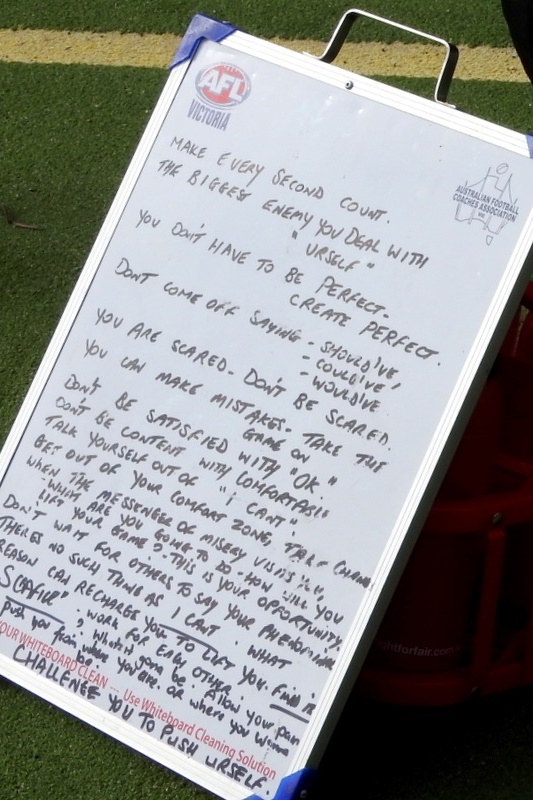 AFL
VICTORIA
AUSTRALIAN FOOTBALL
COACHES ASSOCIATION
MAKE EVERY SECOND COUNT.
THE BIGGEST ENEMY YOU DEAL WITH
"URSELF"
YOU DON'T HAVE TO BE PERFECT-
CREATE PERFECT.
DONT COME OFF SAYING - SHOULD'VE
- COULD'VE
- WOULD'VE
YOU ARE SCARED- DON'T BE SCARED.
YOU CAN MAKE MISTAKES- TAKE THE
GAME ON
DON'T BE SATISFIED WITH "OK."
DON'T BE CONTENT WITH COMFORTABLE
TALK YOURSELF OUT OF "I CANT"
GET OUT OF YOUR COMFORT ZONE, TAKE CHANCE
WHEN THE MESSENGER OF MISERY VISITS
WHAT ARE YOU GOING TO DO - HOW WILL YOU
LIFT YOUR GAME? THIS IS YOUR OPPORTUNITY.
DON'T WAIT FOR OTHERS TO SAY YOUR PHENOMENAL
THERES NO SUCH THING AS I CANT. WHAT
REASON CAN RECHARGE YOU TO LIFT YOU. FIND IT
WORK FOR EACH OTHER.
gonna be? Allow your pain
push you from where you are. or where you wanna
be.
YOUR WHITEBOARD CLEAN ... Use Whiteboard Cleaning Solution
CHALLENGE YOU TO PUSH URSELF.
htforfair.com